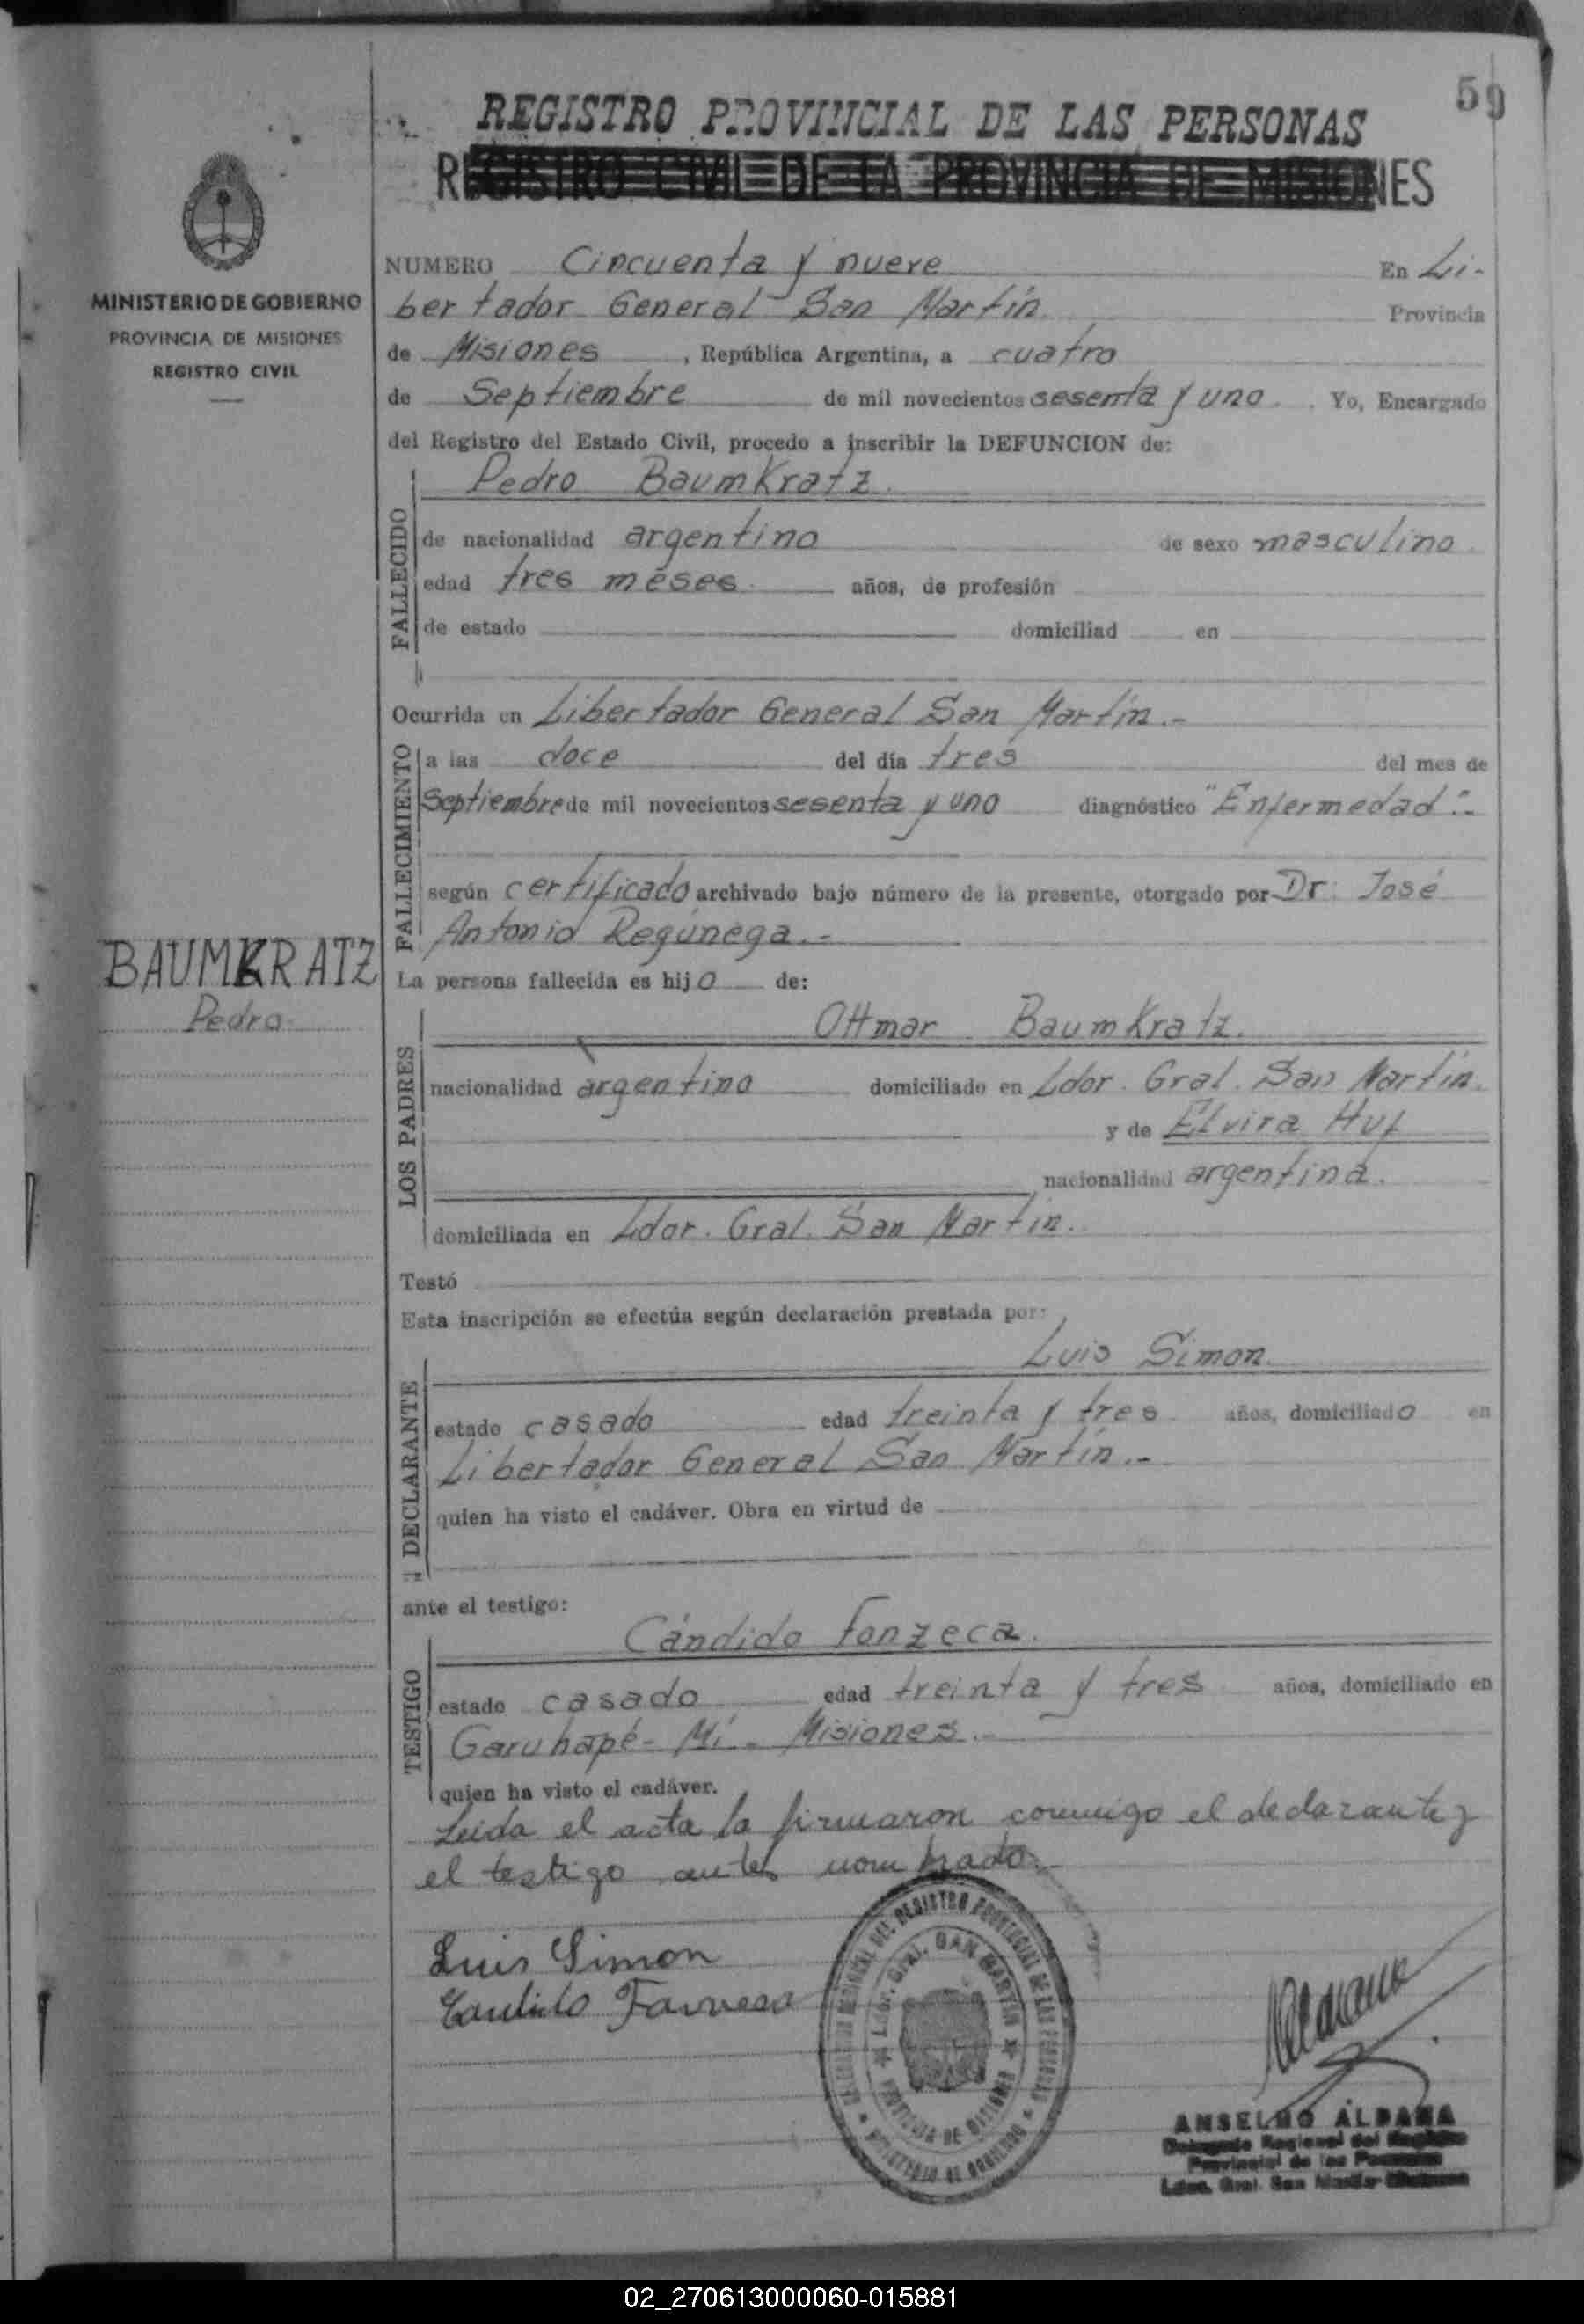 59
REGISTRO PROVINCIAL DE LAS PERSONAS
REGISTRO CIVIL DE LA PROVINCIA DE MISIONES
MINISTERIO DE GOBIERNO
PROVINCIA DE MISIONES
REGISTRO CIVIL
NUMERO Cincuenta y nueve En Li-
bertador General San Martín Provincia
de Misiones, República Argentina, a cuatro
de Septiembre de mil novecientos sesenta y uno. Yo, Encargado
del Registro del Estado Civil, procedo a inscribir la DEFUNCION de:
FALLECIDO
Pedro BaumKratz.
de nacionalidad argentino de sexo masculino.
edad tres meses. años, de profesión
de estado domiciliad en
Ocurrida en Libertador General San Martín.-
FALLECIMIENTO
a las doce del día tres del mes de
Septiembre de mil novecientos sesenta y uno diagnóstico "Enfermedad".-
según certificado archivado bajo número de la presente, otorgado por Dr. José
Antonio Regúnega.-
BAUMKRATZ
Pedro
La persona fallecida es hijo de:
LOS PADRES
Ottmar BaumKratz.
nacionalidad argentino domiciliado en Ldor. Gral. San Martín.
y de Elvira Huf
nacionalidad argentina.
domiciliada en Ldor. Gral. San Martín.
Testó
Esta inscripción se efectúa según declaración prestada por:
DECLARANTE
Luis Simon.
estado casado edad treinta y tres años, domiciliado en
Libertador General San Martín.-
quien ha visto el cadáver. Obra en virtud de
ante el testigo:
TESTIGO
Cándido Fonzeca.
estado casado edad treinta y tres años, domiciliado en
Garuhapé-Mí.- Misiones.-
quien ha visto el cadáver.
Leida el acta la firmaron conmigo el declarante y
el testigo antes nombrado.-
Luis Simon
DEL REGISTRO PROVINCIAL DE LAS PERSONAS
Ldor. Gral. SAN MARTIN
PROVINCIA DE MISIONES
MINISTERIO DE GOBIERNO
ANSELMO ALDANA
Delegado Regional del Registro
Provincial de las Personas
Ldor. Gral. San Martín-Misiones
02_270613000060-015881